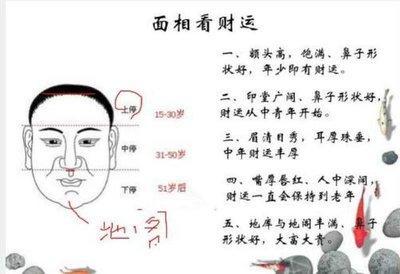 面相看财运
一、额头高，饱满、鼻子形
状好，年少即有财运。
二、印堂广阔、鼻子形状好，
财运从中青年开始。
三、眉清目秀，耳厚珠垂，
中年财运丰厚
四、嘴厚唇红、人中深阔，
财运一直会保持到老年
五、地库与地阁丰满、鼻子
形状好，大富大贵。
上停
15-30岁
中停
31-50岁
下停
51岁后
地阁